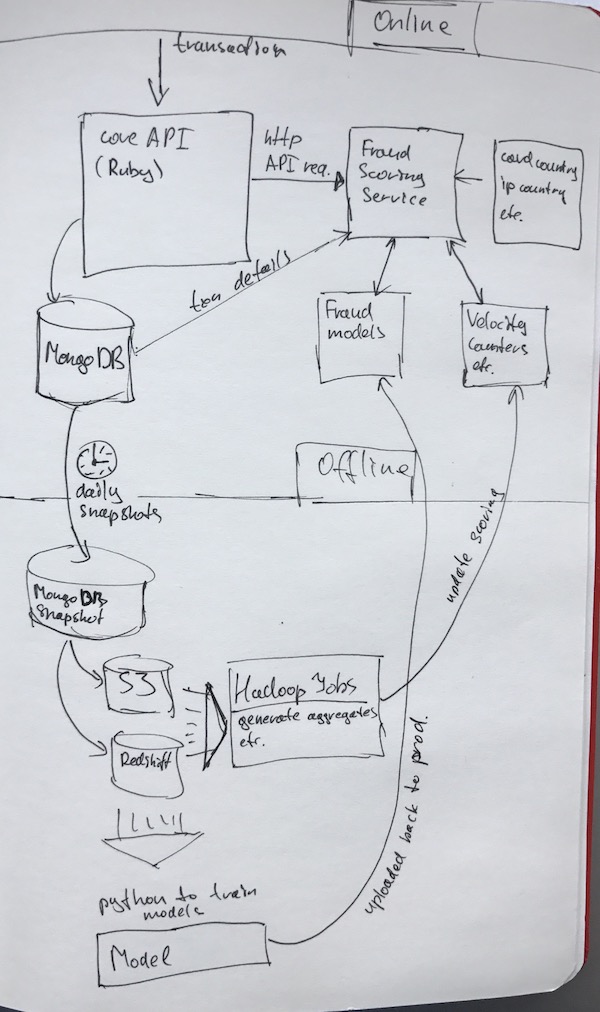 Online
transaction
core API
(Ruby)
http
API req.
Fraud
Scoring
Service
card country
ip country
etc.
txn details
MongoDB
Fraud
models
Velocity
Counters
etc.
Offline
daily
snapshots
update scoring
MongoDB
Snapshot
S3
Redshift
Hadoop Jobs
generate aggregates
etc.
uploaded back to prod.
python to train
models
Model